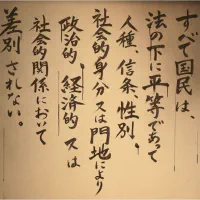 すべて国民は、
法の下に平等であって
人種、信条、性別、
社会的身分又は門地により
政治的、経済的又は
社会的関係において
差別されない。